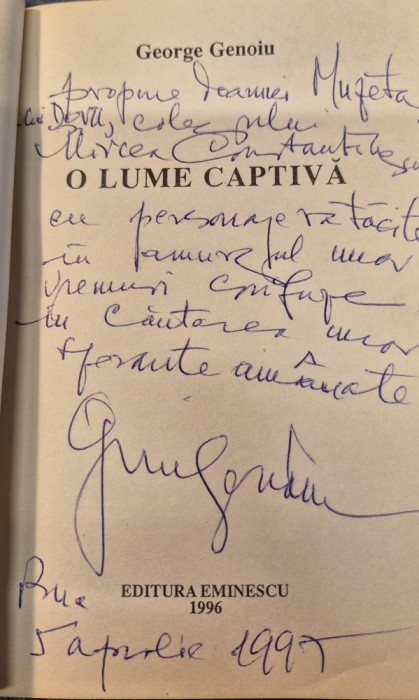 George Genoiu
propune Doamnei Mușeta
lui Doru, colegului
Mircea Constantinescu
O LUME CAPTIVĂ
cu personaje rătăcite
în amurgul unor
vremuri confuze
în căutarea unor
speranțe amânate
EDITURA EMINESCU
1996
5 aprilie 1997